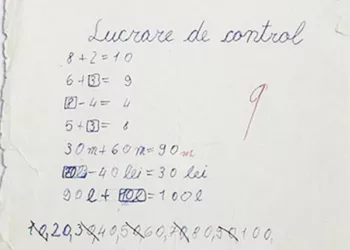 Lucrare de control
8+2=10
6+3= 9
8-4= 4
5+3= 8
30m+60m=90m
70-40 lei=30 lei
90l+10l=100l
10,20,30,40,50,60,70,80,90,100,
9